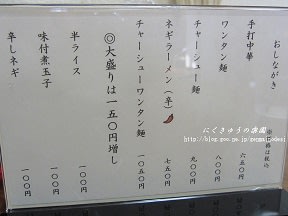 おしながき
※価格は税込
手打中華 六五〇円
ワンタン麺 八〇〇円
チャーシュー麺 九〇〇円
ネギラーメン(辛) 七五〇円
チャーシューワンタン麺 一〇五〇円
◎大盛りは一五〇円増し
半ライス 一〇〇円
味付煮玉子 一〇〇円
辛しネギ 一〇〇円
にくきゅうの楽園